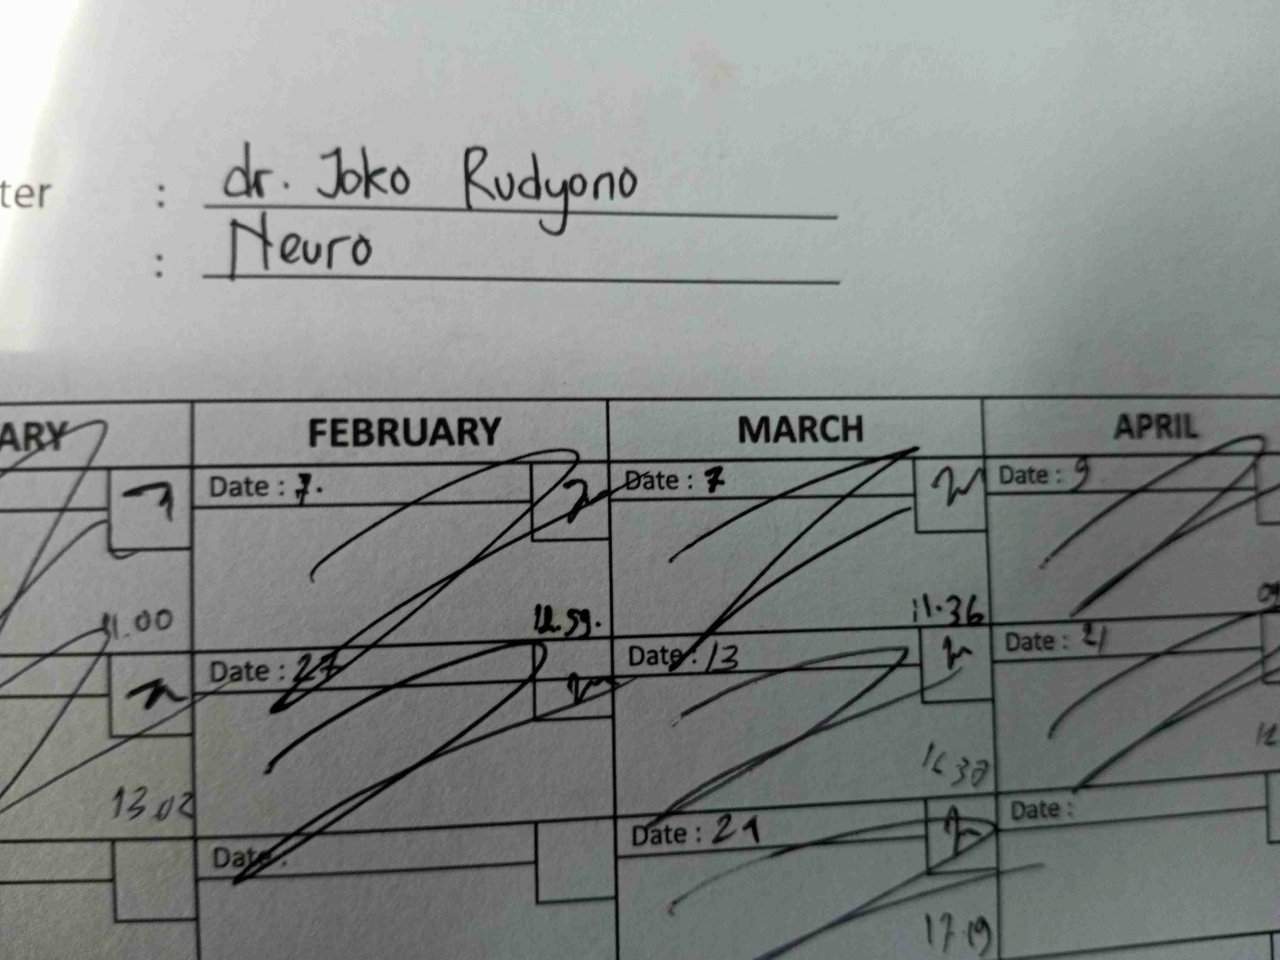 ter : dr. Joko Rudyono
: Neuro
ARY FEBRUARY MARCH APRIL
Date : 7. Date : 7 Date : 9
11.00 12.59. 11.36
Date : 27 Date : 13 Date : 21
13.02
Date : Date : 21 Date :
17.19